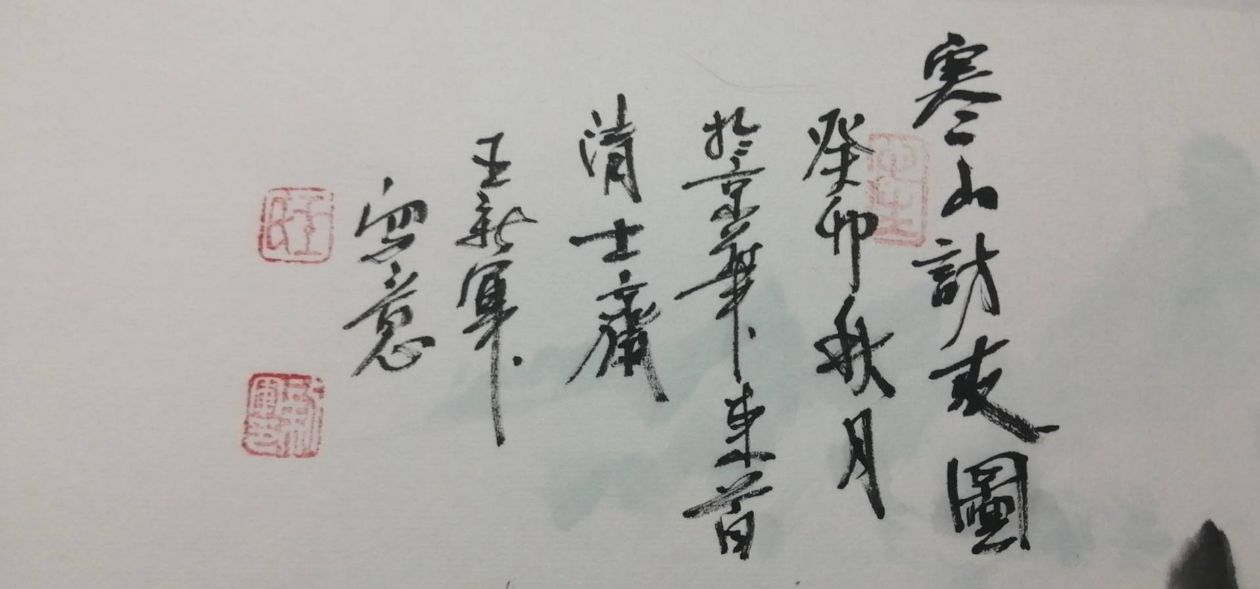 寒山訪友圖
癸卯秋月
於京華東首
清士齋
王新軍
寫意